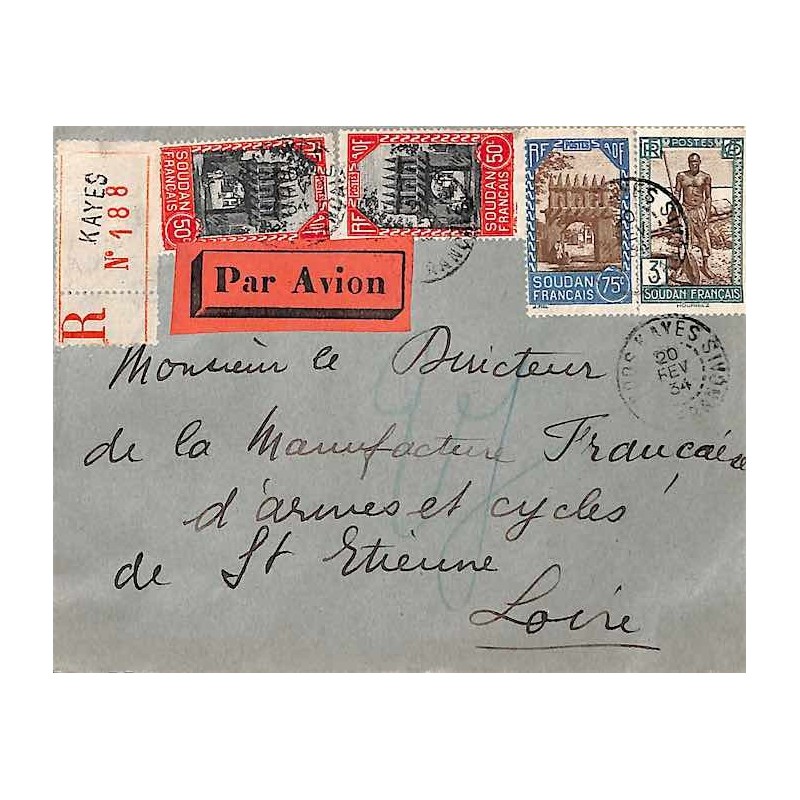 KAYES
N° 188
R
SOUDAN
FRANÇAIS
50c
RF POSTES AOF
RF POSTES AOF
50c
SOUDAN
FRANÇAIS
RF POSTES AOF
SOUDAN
FRANÇAIS 75c
RF POSTES
3F
SOUDAN FRANÇAIS
Par Avion
KAYES
20
FEV
34
Monsieur le Directeur
de la Manufacture Francaise
d'armes et cycles
de St Etienne
Loire